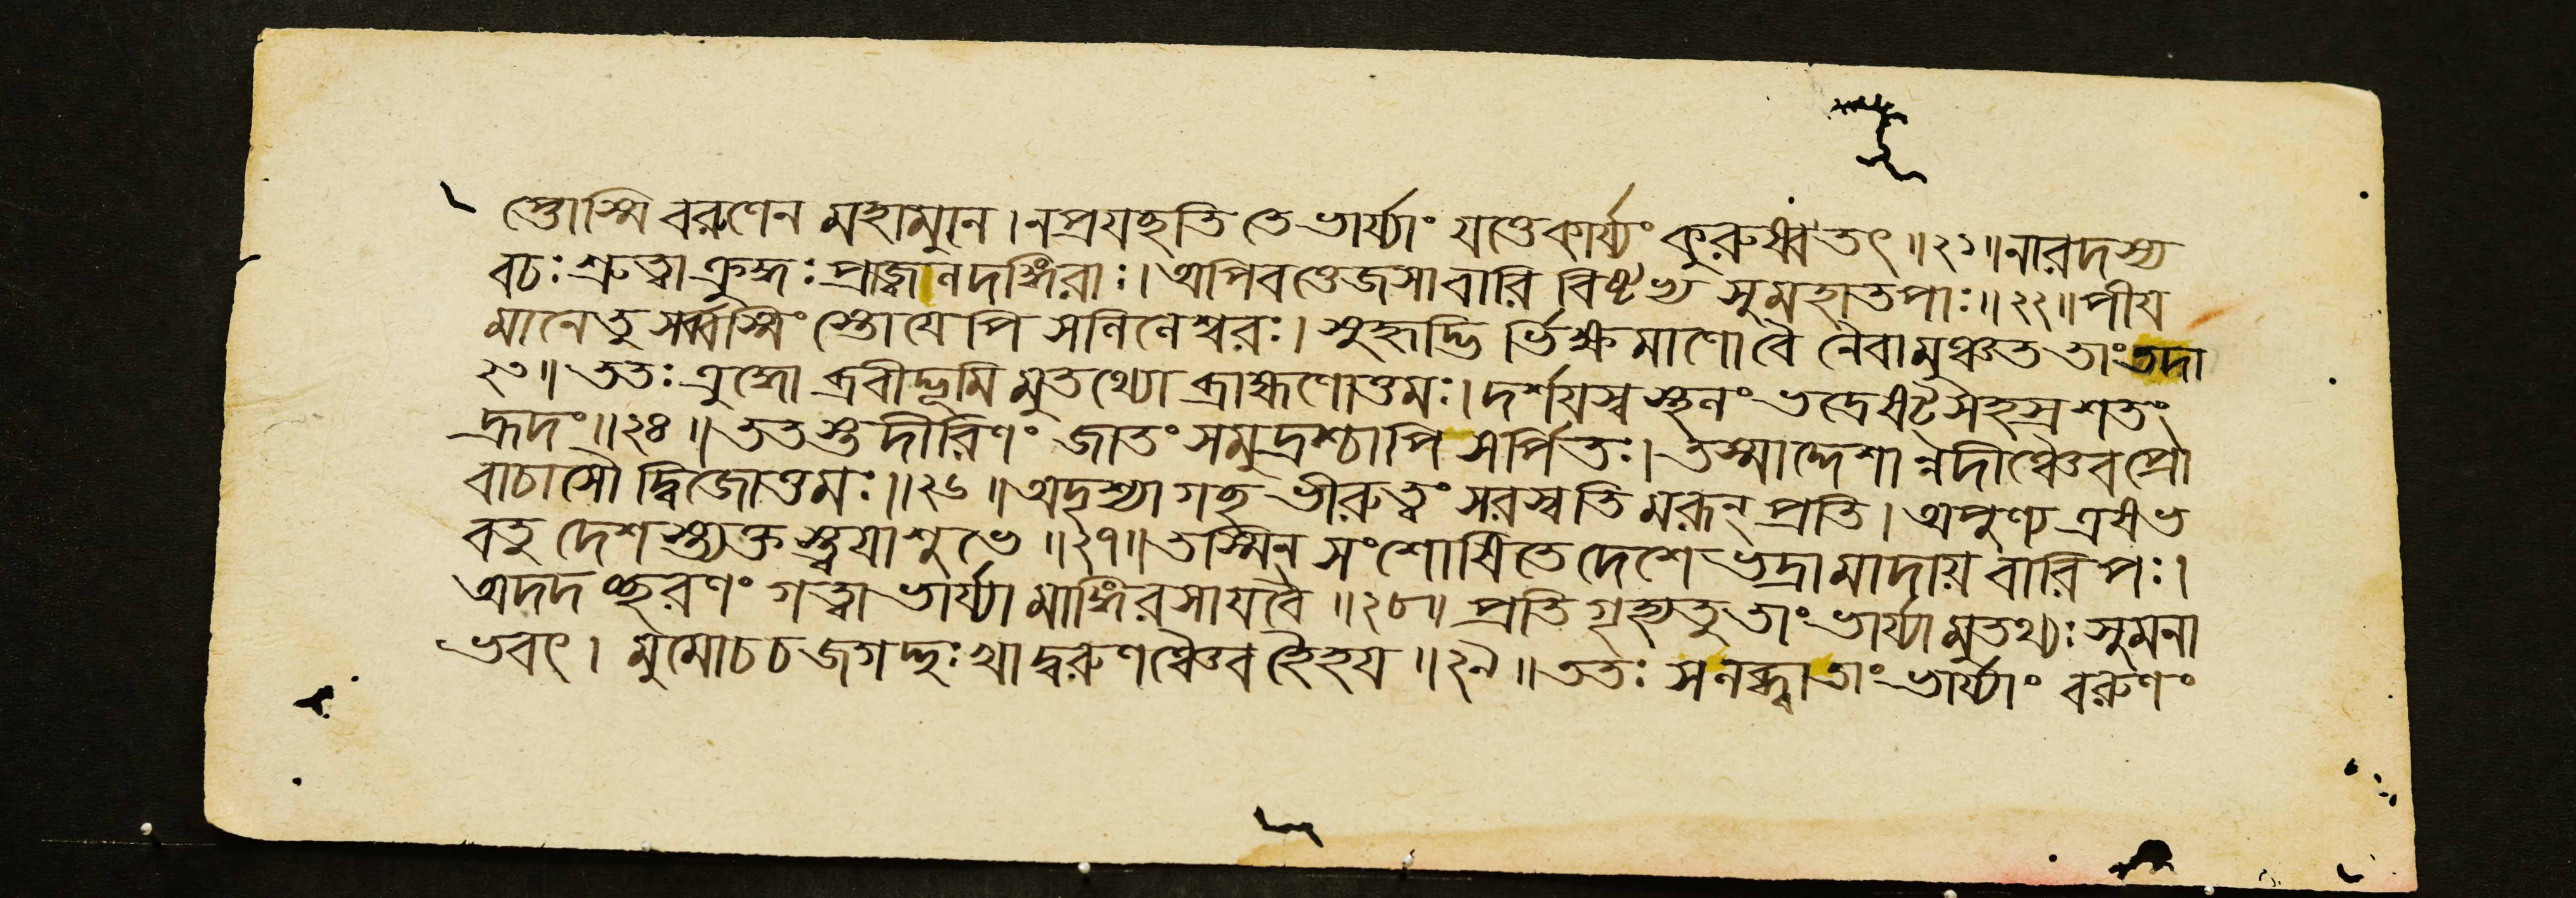 প্তোস্মি বরুণেন মহামুনে । ন প্রযচ্ছতি তে ভার্য্যাং যত্তে কার্য্যং কুরুষ্ব তৎ ॥ ২১ ॥ নারদস্য
বচঃ শ্রুত্বা ক্রুদ্ধঃ প্রাজ্বলদঙ্গিরাঃ । অপিবত্তেজসা বারি বিষ্টভ্য সুমহাতপাঃ ॥ ২২ ॥ পীয
মানে তু সর্ব্বস্মিং স্তোযেপি সলিলেশ্বরঃ । সুহৃদ্ভি র্ভিক্ষমাণো বৈ নৈবামুঞ্চত তাং তদা
২৩ ॥ ততঃ ক্রুদ্ধো ব্রবীদ্ভূমি মুতথ্যো ব্রাহ্মণোত্তমঃ । দর্শযস্ব স্থলং ভদ্রে ষট্সহস্রশতং
হ্রদং ॥ ২৪ ॥ ততস্তদীরিণং জাতং সমুদ্রশ্চাপি সর্পিতঃ । তস্মাদ্দেশা ন্নদীঞ্চৈব প্রো
বাচাসৌ দ্বিজোত্তমঃ ॥ ২৬ ॥ অদৃশ্যা গচ্ছ ভীরু ত্বং সরস্বতি মরূন্ প্রতি । অপুণ্য এষ ভ
বতু দেশ স্ত্যক্ত স্ত্বযা শুভে ॥ ২৭ ॥ তস্মিন্ সংশোষিতে দেশে ভদ্রামাদায় বারিপঃ ।
অদদ চ্ছরণং গত্বা ভার্য্যা মাঙ্গিরসায বৈ ॥ ২৮ ॥ প্রতিগৃহ্য তু তাং ভার্য্যা মুতথ্যঃ সুমনা
ভবৎ । মুমোচ চ জগদ্দুঃখা দ্বরুণঞ্চৈব হৈহয ॥ ২৯ ॥ ততঃ স লব্ধ্বা তাং ভার্য্যাং বরুণং